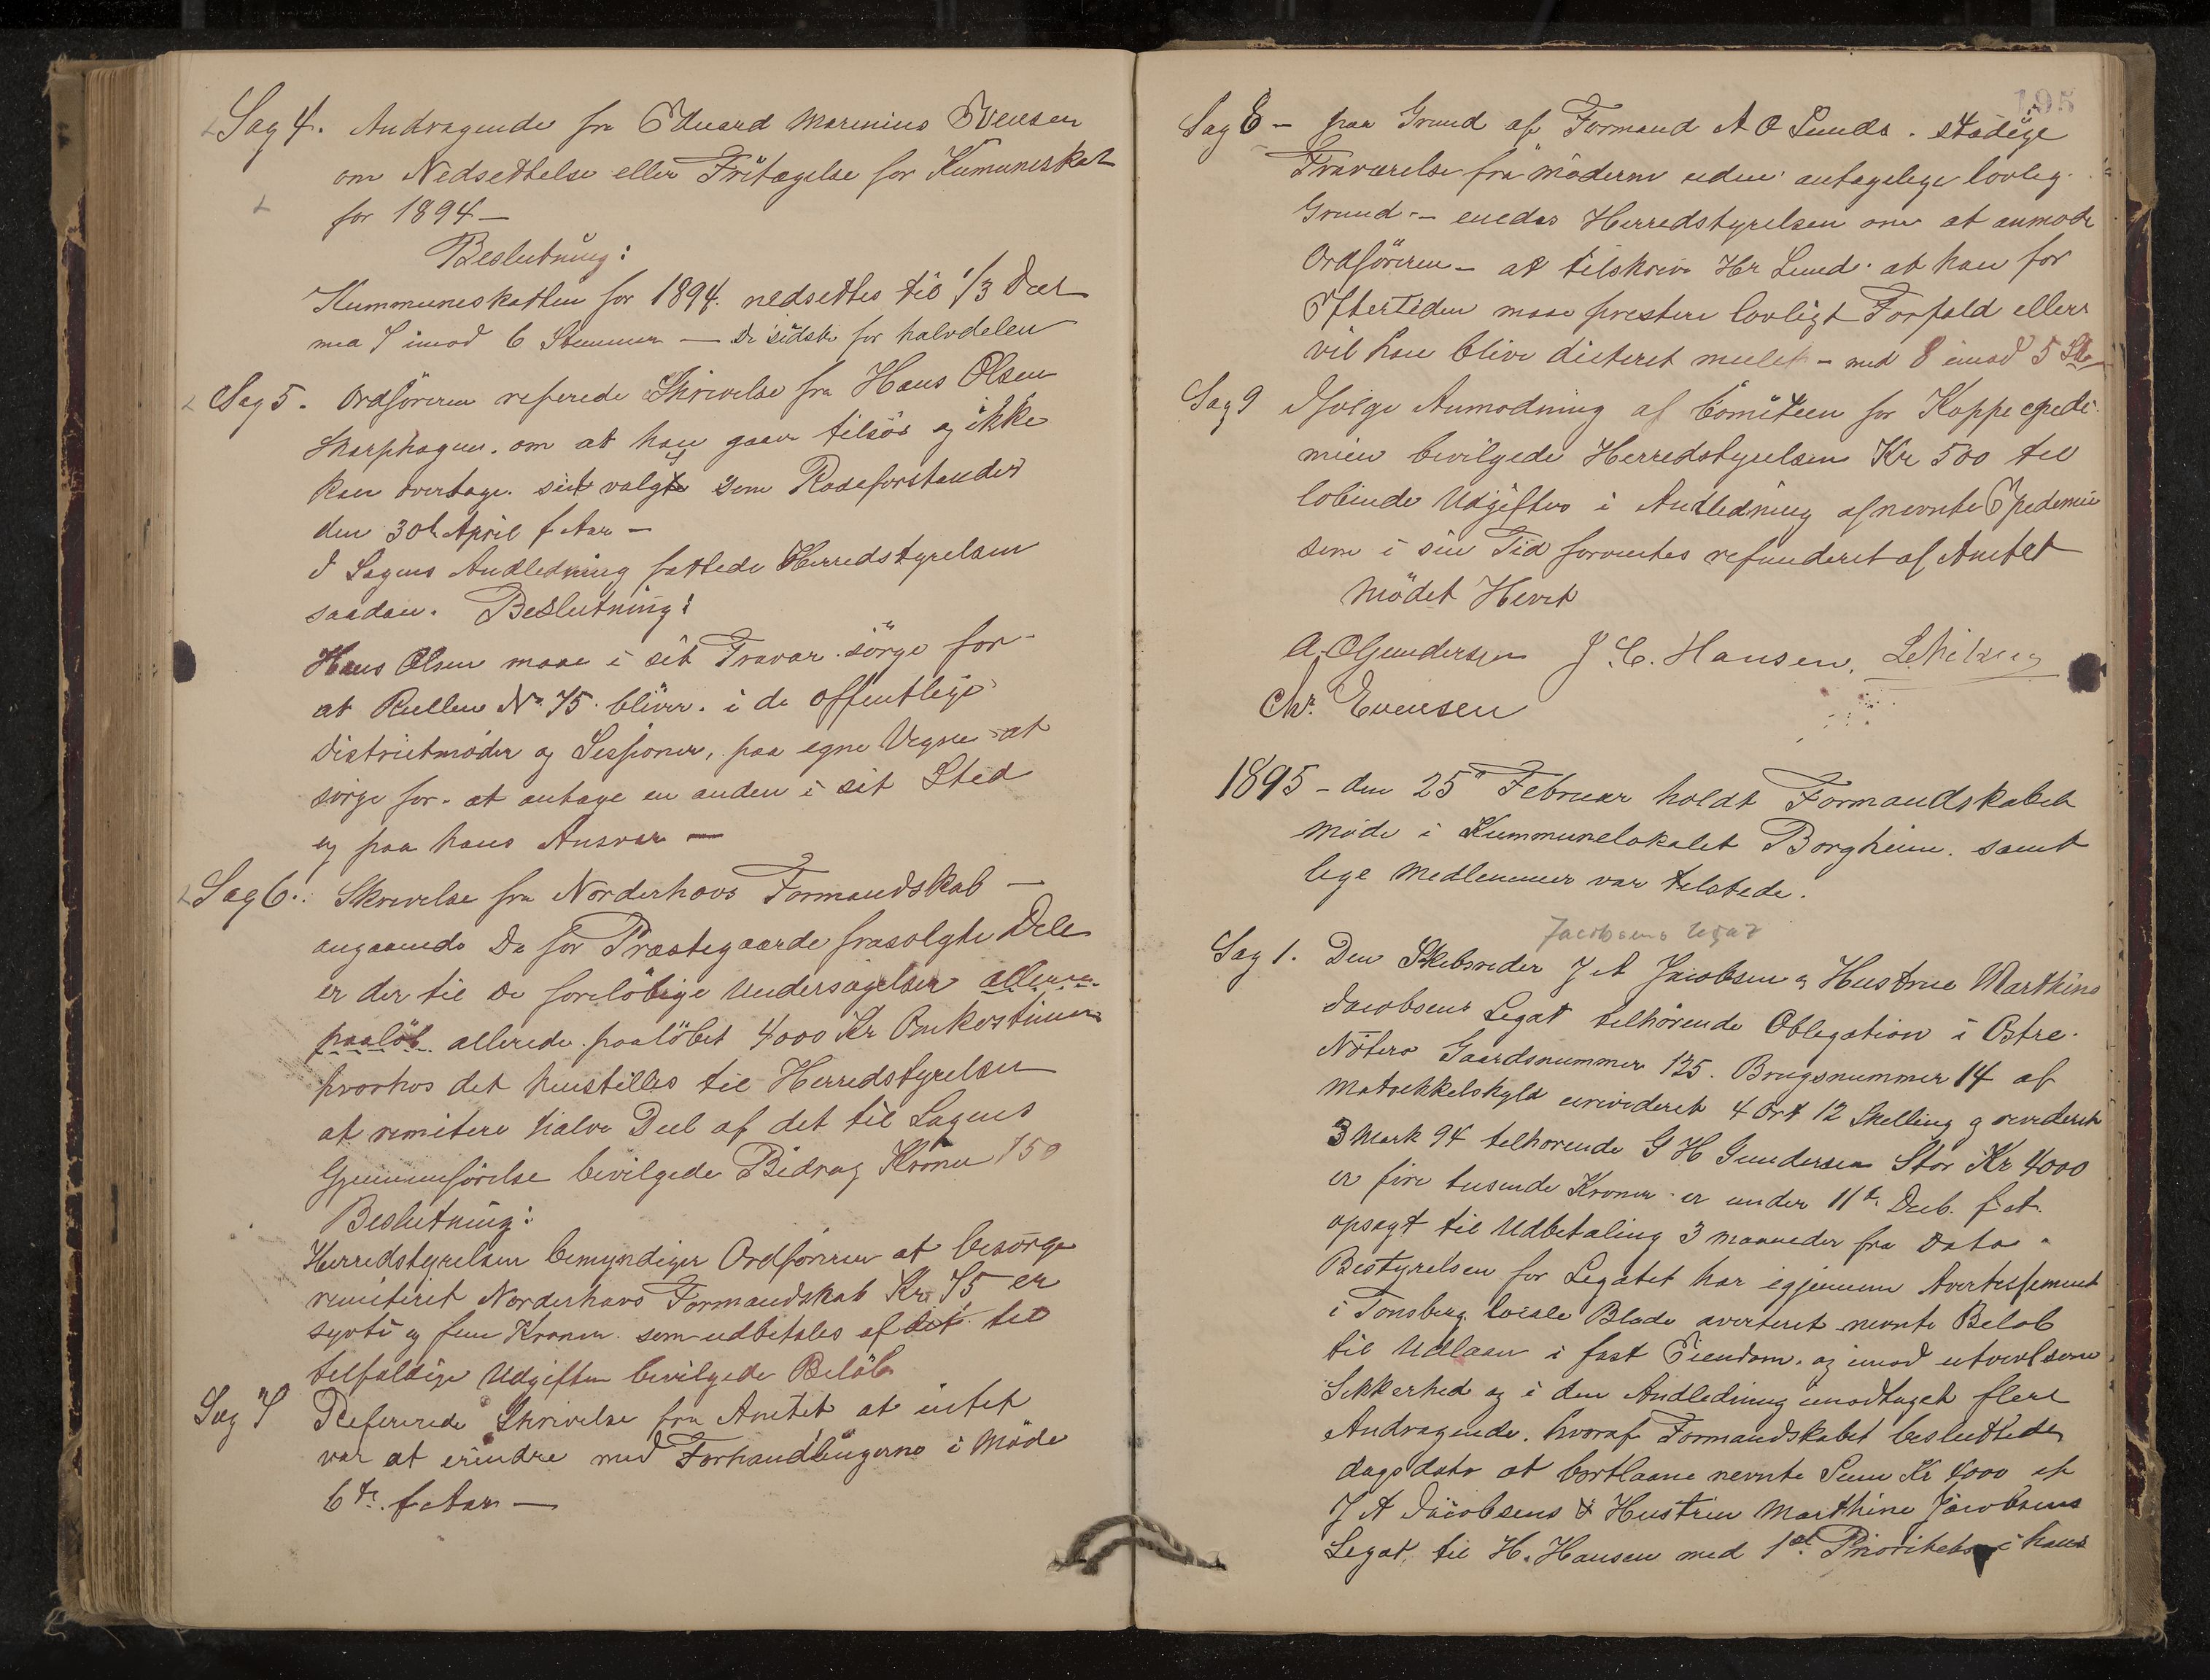 Sag 4. Andragende fra Eduard Marinius Evensen
om Nedsettelse eller Fritagelse for Kumuneskat
for 1894 —
Beslutning:
Kummuneskatten for 1894. nedsettes til 1/3 Deel
med 7 imod 6 Stemmer — De sidste for halvdelen
Sag 5. Ordföreren referede Skrivelse fra Hans Olsen
Skarphagen. om at han gaar tilsös og ikke
kan overtage sit valg som Rodeforstander
den 30te April f Aar —
I Sagens Andledning fattede Herredstyrelsen
saadan. Beslutning:
Hans Olsen maae i sit Fravær sörge for
at Rullen No 75. bliver i de offentlige
Districtmöder og Sessioner, paa egne Vegne at
sörge for at antage en anden i sit Sted
og paa hans Ansvar —
Sag 6. Skrivelse fra Norderhovs Formandskab —
angaaende De for Præstegaarde frasolgte Dele
er der til de forelöbige Undersögelser allerede
paalöb. allerede paalöbet 4000 Kr Omkostninger
hvorhos det henstilles til Herredstyrelsen
at remitere halve Deel af det til Sagens
Gjennemförelse bevilgede Bidrag Kroner 150
Beslutning:
Herredstyrelsen bemyndiger Ordföreren at besörge
remiteret Norderhovs Formandskab Kr. 75 er
sytti og fem Kroner som udbetales af det til
tilfældige Udgifter bevilgede Belöb
Sag 7 Refererede Skrivelse fra Amtet at intet
var at erindre med Forhandlingerne i Möde
6te. f. Aar —
195
Sag 8 – paa Grund af Formand A O Lunds. stadige
Fraværelse fra möderne uden antagelige lovlig
Grund – enedes Herredstyrelsen om at anmode
Ordföreren – at tilskrive Hr Lund. at han for
Eftertiden maae prestere lovligt Forfald ellers
vil han blive dicteret mulct – med 8 imod 5 St
Sag 9 Ifölge Anmodning af Comiteen for Koppeepede-
mien bevilgede Herredstyrelsen Kr 500 til
löbende Udgifter i Andledning af nevnte Epedemie
som i sin Tid forventes refunderet af Amtet
Mödet Hevet
A. O Gundersen J. C. Hansen,
Chr. Evensen
1895 – den 25de Februar holdt Formandskabet
Möde i Kummunelokalet Borgheim. samt
lige Medlemmer var tilstede.
Jacobsens Legat
Sag 1. Den Skibsreder J A Jacobsen & Hustrue Marthine
Jacobsens Legat tilhörende Obligation i Östre
Nötero Gaardsnummer 125. Brugsnummer 14 af
Matrekkelskyld urevideret 4 Ort 12 Skelling og revideret
3 Mark 94 tilhorende G H Gundersen Stor Kr 4000
er fire tusende Kroner er under 11te Decb. f. A.
opsagt til Udbetaling 3 maaneder fra Dato.
Bestyrelsen for Legatet har igjennem Avertissement
i Tonsberg locale Blade averteret nevnte Belöb
til Udlaan i fast Eiendom. og imod utvevlsom
Sikkerhed og i den Andledning imodtaget flere
Andragende. hvoraf Formandskabet besluttede
dagsdato at bortlaane nevnte Sum Kr 4000 af
J A Jacobsens & Hustrue Marthine Jacobsens
Legat, til H. Hansen med 1ste Prioritets i hans